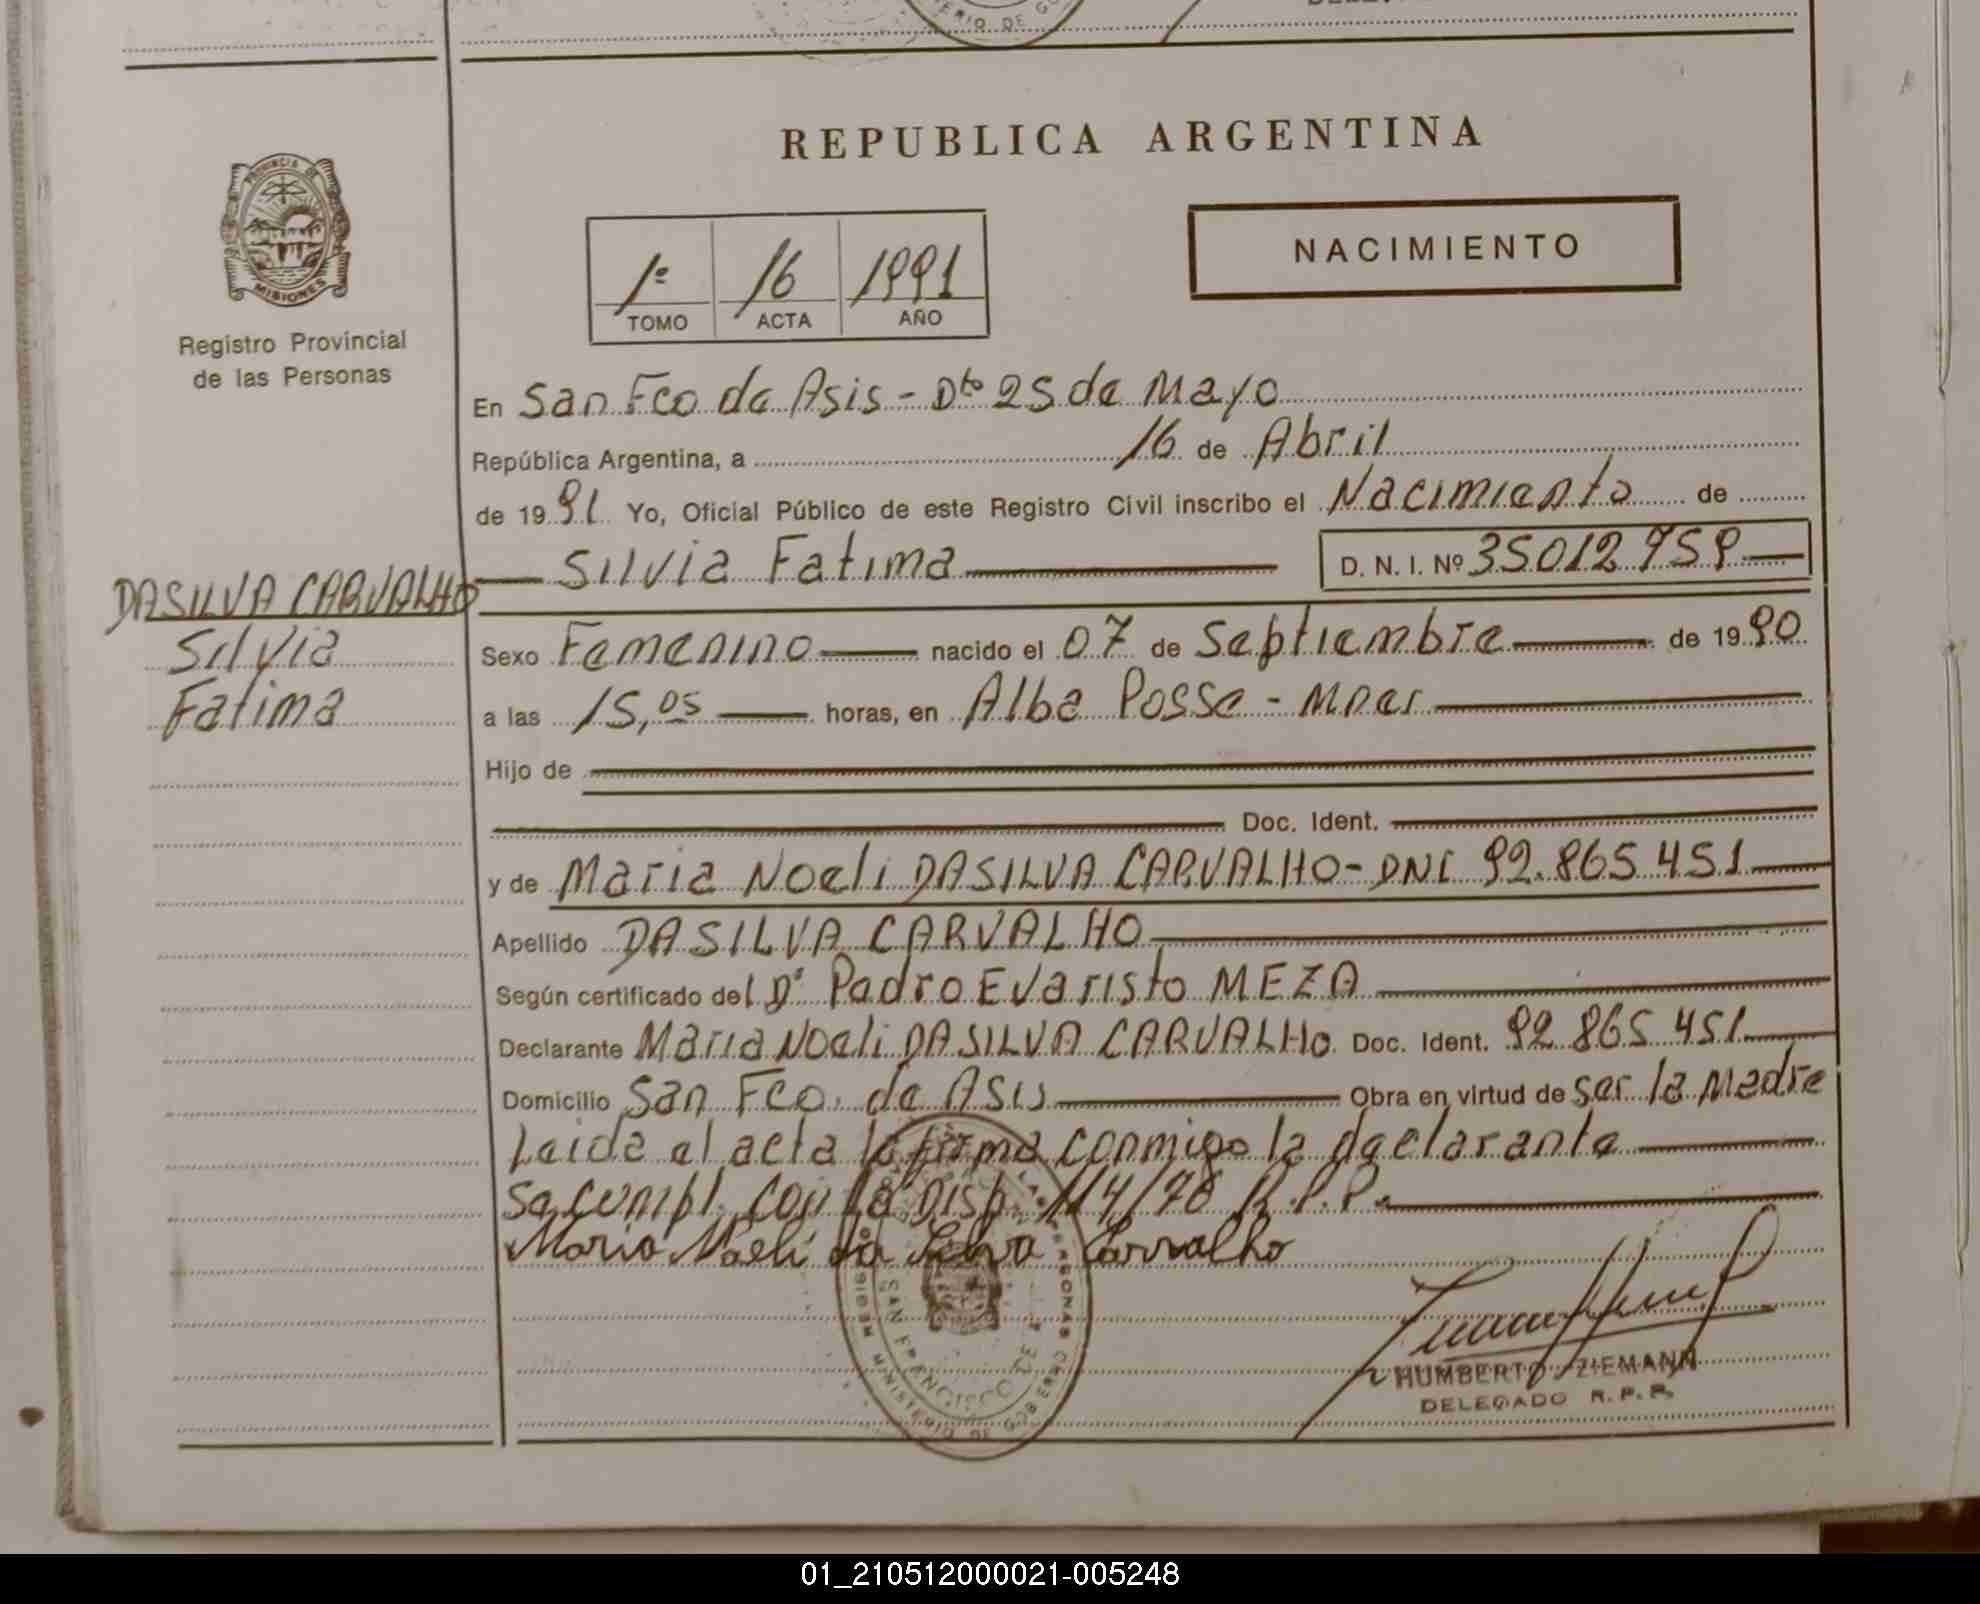 REPUBLICA ARGENTINA
PROVINCIA DE
MISIONES
Registro Provincial
de las Personas
1º 16 1991
TOMO ACTA AÑO
NACIMIENTO
En San Fco de Asis - Dto 25 de Mayo
República Argentina, a 16 de Abril
de 1991 Yo, Oficial Público de este Registro Civil inscribo el Nacimiento de
Silvia Fatima D. N. I. Nº 35012959
DASILVA CARVALHO
Silvia
Fatima
Sexo Femenino nacido el 07 de Septiembre de 1990
a las 15,05 horas, en Alba Posse - Mnes
Hijo de
Doc. Ident.
y de Maria Noeli DASILVA CARVALHO - DNI 92.865.451
Apellido DASILVA CARVALHO
Según certificado del Dr Pedro Evaristo MEZA
Declarante Maria Noeli DASILVA CARVALHO Doc. Ident. 92.865.451
Domicilio San Fco. de Asis Obra en virtud de ser la madre
Leida el acta la firma conmigo la declarante
Se cumpl. con la Disp. 114/78 R.P.P.
Maria Noeli da Silva Carvalho
SAN FRANCISCO DE
MINISTERIO DE GOBIERNO
HUMBERTO ZIEMANN
DELEGADO R. P. P.
01_210512000021-005248